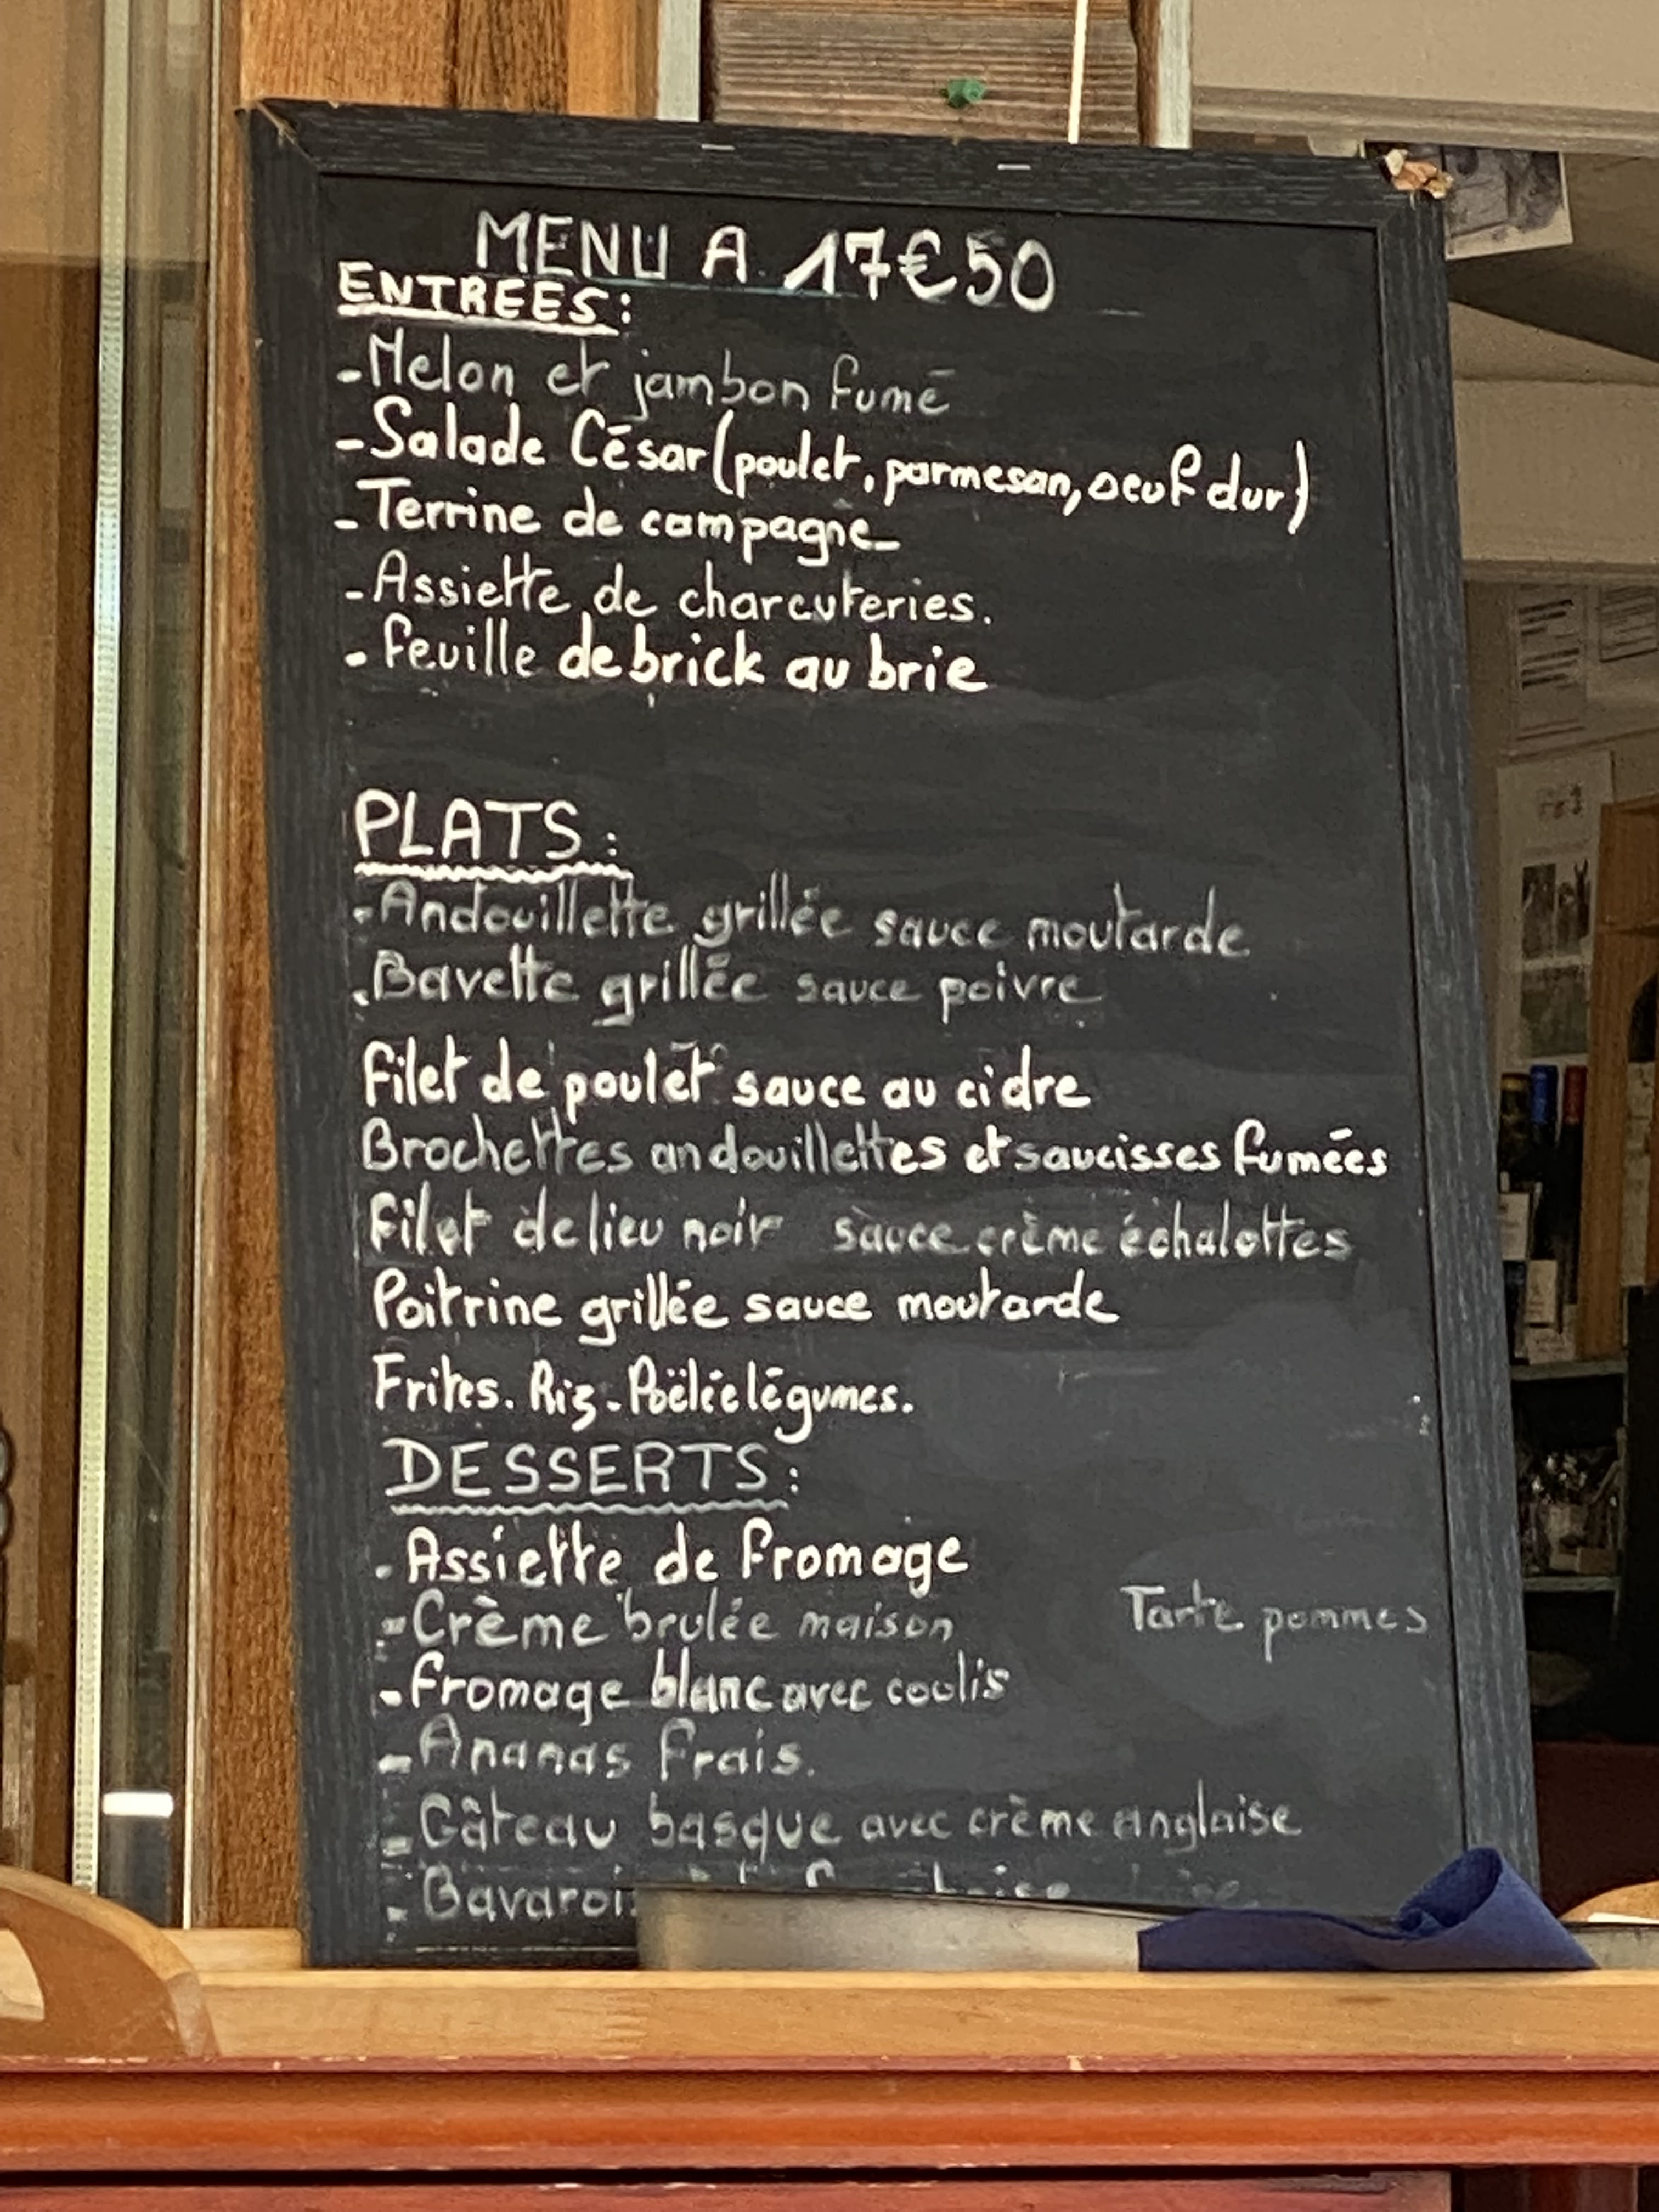 MENU A 17€50
ENTREES:
-Melon et jambon fumé
-Salade César (poulet, parmesan, oeuf dur)
-Terrine de campagne
-Assiette de charcuteries.
-feuille de brick au brie
PLATS:
-Andouillette grillée sauce moutarde
.Bavette grillée sauce poivre
filet de poulet sauce au cidre
Brochettes andouillettes et saucisses fumées
filet de lieu noir sauce crème échalottes
Poitrine grillée sauce moutarde
Frites. Riz-Poëlée légumes.
DESSERTS:
. Assiette de fromage
-Crème brulée maison
Tarte pommes
-fromage blanc avec coulis
-Ananas frais.
-Gâteau basque avec crème anglaise